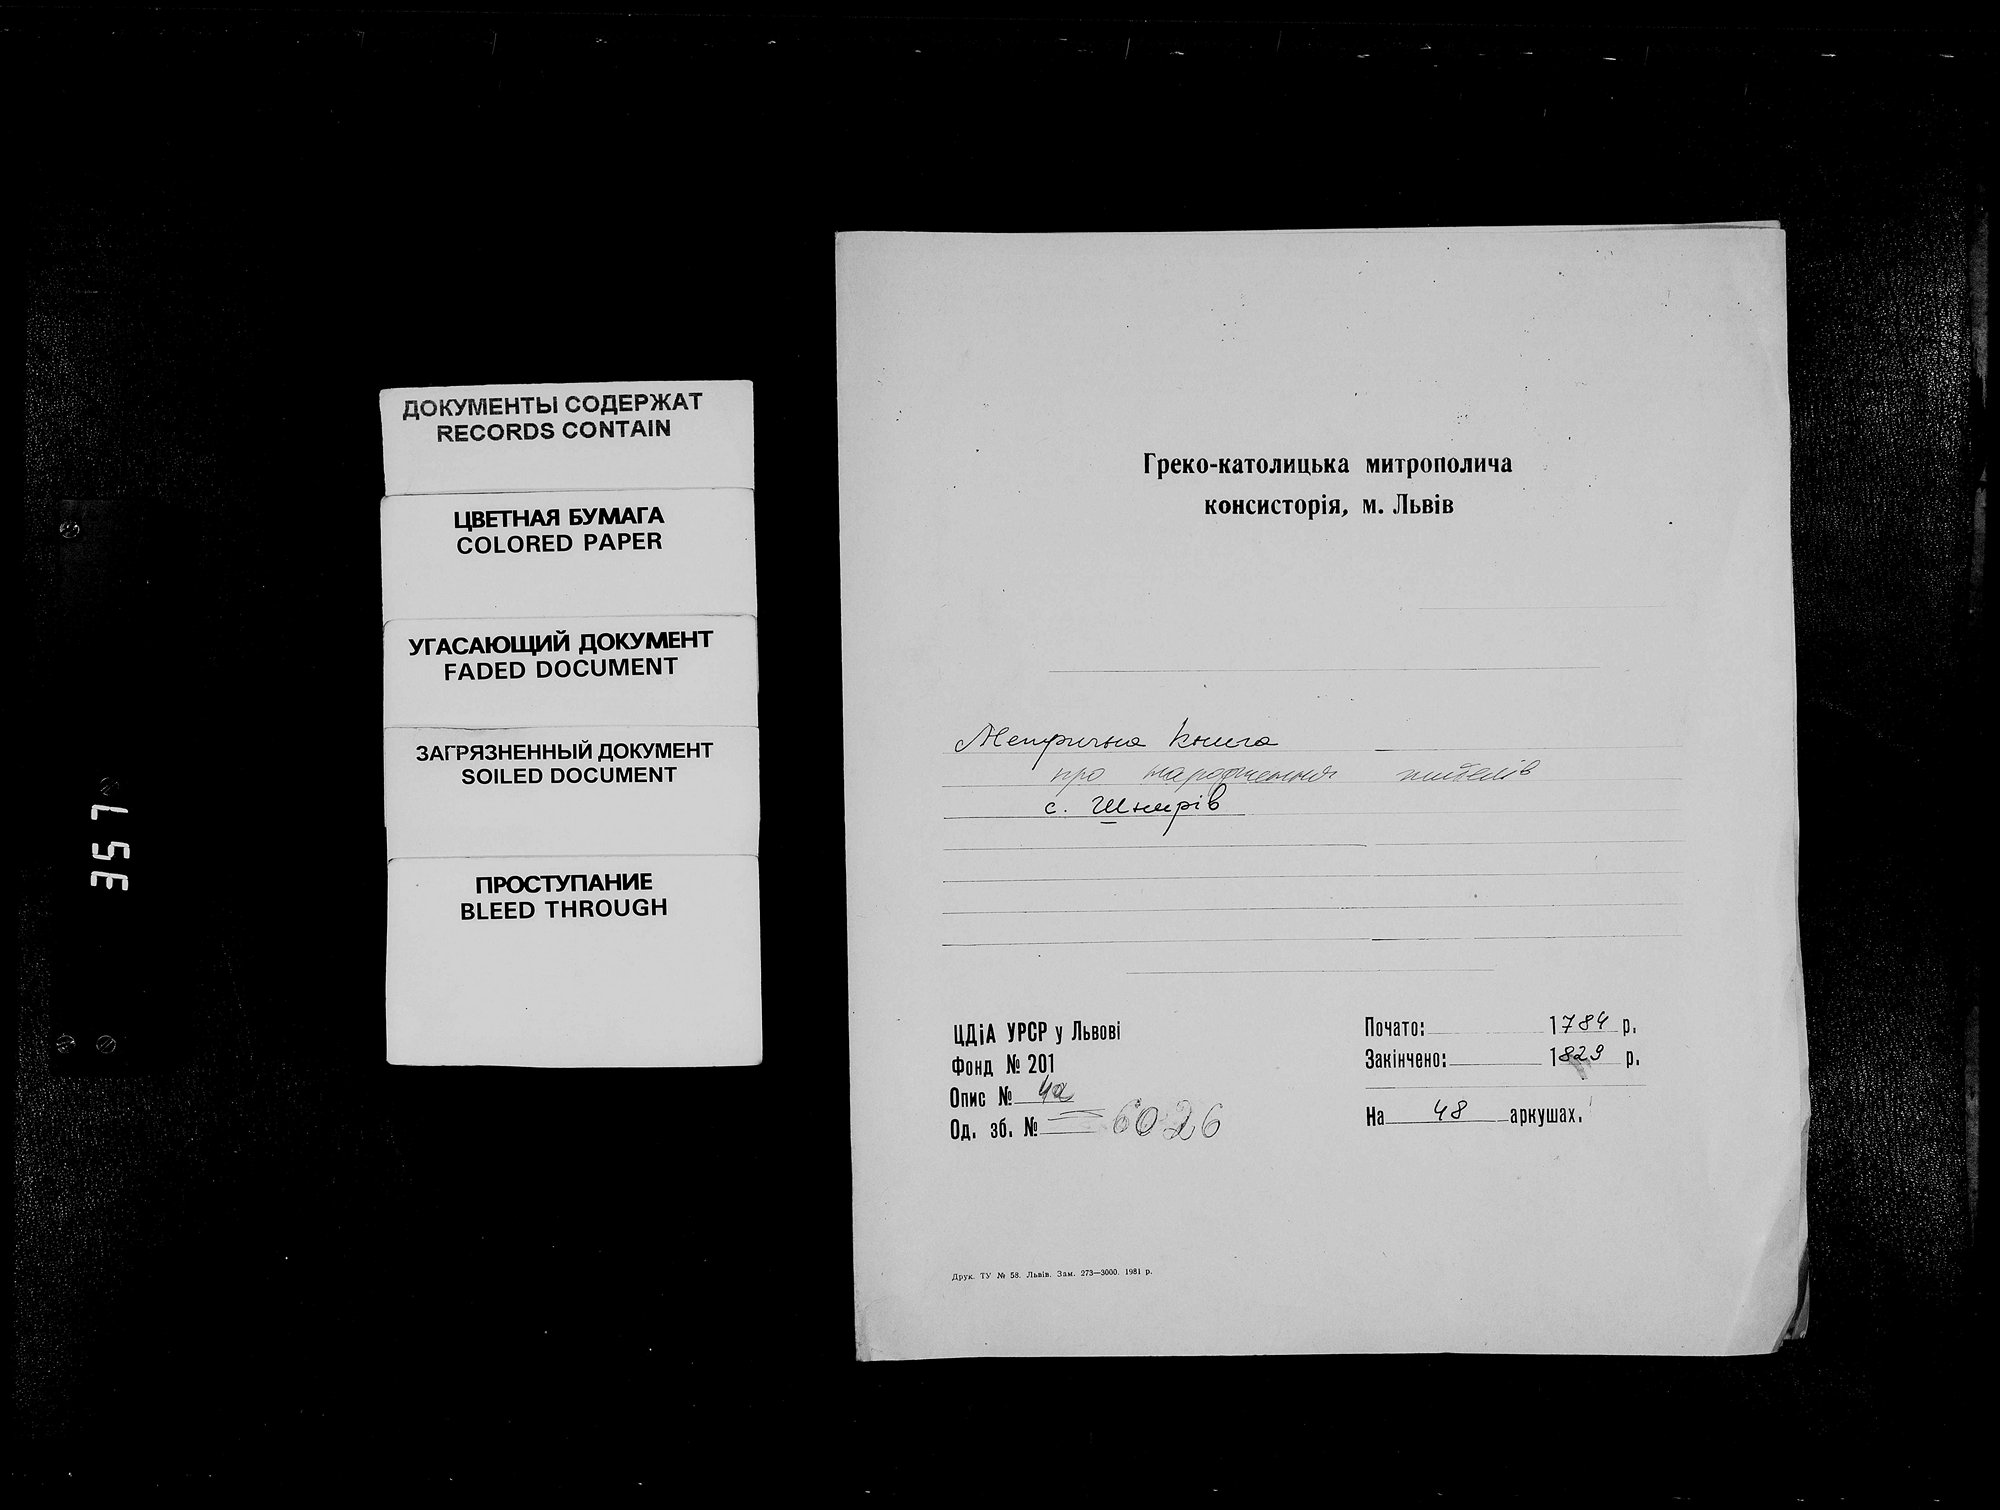 ДОКУМЕНТЫ СОДЕРЖАТ
RECORDS CONTAIN
ЦВЕТНАЯ БУМАГА
COLORED PAPER
УГАСАЮЩИЙ ДОКУМЕНТ
FADED DOCUMENT
ЗАГРЯЗНЕННЫЙ ДОКУМЕНТ
SOILED DOCUMENT
ПРОСТУПАНИЕ
BLEED THROUGH
357
Греко-католицька митрополича
консисторія, м. Львів
Метрична книга
про народження жителів
с. Шнирів
ЦДіА УРСР у Львові
Фонд № 201
Опис № 4а
Од. зб. № 6026
Почато: 1784 р.
Закінчено: 1829 р.
На 48 аркушах.
Друк. ТУ № 58. Львів. Зам. 273—3000. 1981 р.